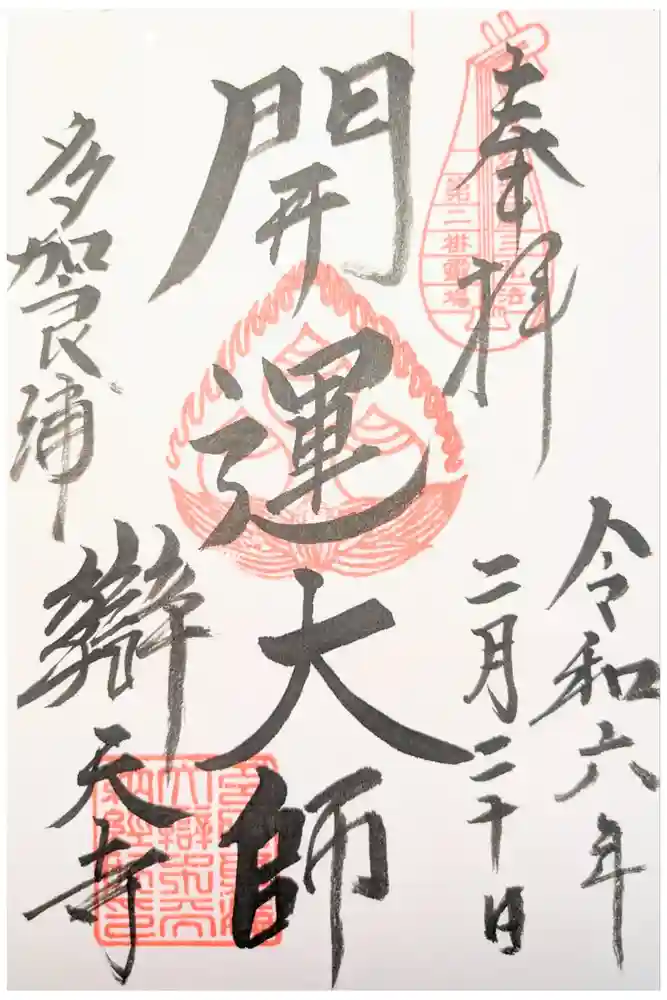 奉拝
令和六年
二月二十日
開運大師
多賀良浦
辯天寺
第二掛霊場